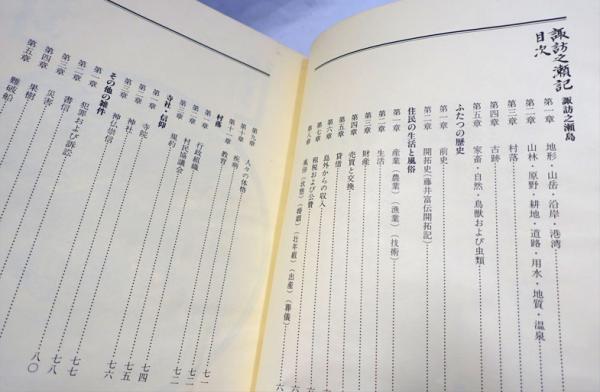 諏訪之瀬記
目次
諏訪之瀬島
第一章 地形・山岳・沿岸・港湾
第二章 山林・原野・耕地・道路・用水・地質・温泉
第三章 村落
第四章 古跡
第五章 家畜・自然・鳥獣および虫類
ふたつの歴史
第一章 前史
第二章 開拓史(藤井富伝開拓記)
住民の生活と風俗
第一章 産業(農業)(漁業)(技術)
第二章 生活
第三章 財産
第四章 売買と交換
第五章 貸借
第六章 島外からの収入
第七章 租税および公費
第八章 風俗(衣態)(婚姻)(壮年組)(出産)(葬儀)
第九章 人々の体格
第十章 疾病
第十一章 教育 七一
村落
第一章 行政組織 七二
第二章 村民協議会
第三章 規約
寺社・信仰
第一章 寺院 七四
第二章 神社 七五
第三章 神仏崇信 七六
その他の雑件
第一章 犯罪および訴訟 七七
第二章 書信
第三章 災害 七八
第四章 果樹
第五章 難破船 八〇